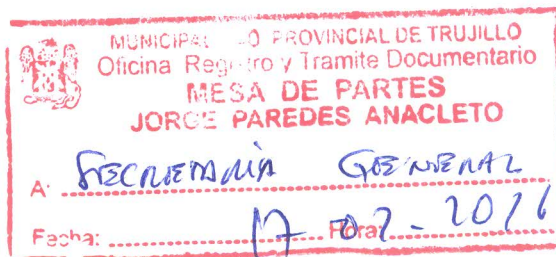 MUNICIPAL PROVINCIAL DE TRUJILLO
Oficina Registro y Tramite Documentario
MESA DE PARTES
JORGE PAREDES ANACLETO
A: SECRETARÍA GENERAL
Fecha: 17 Hora: